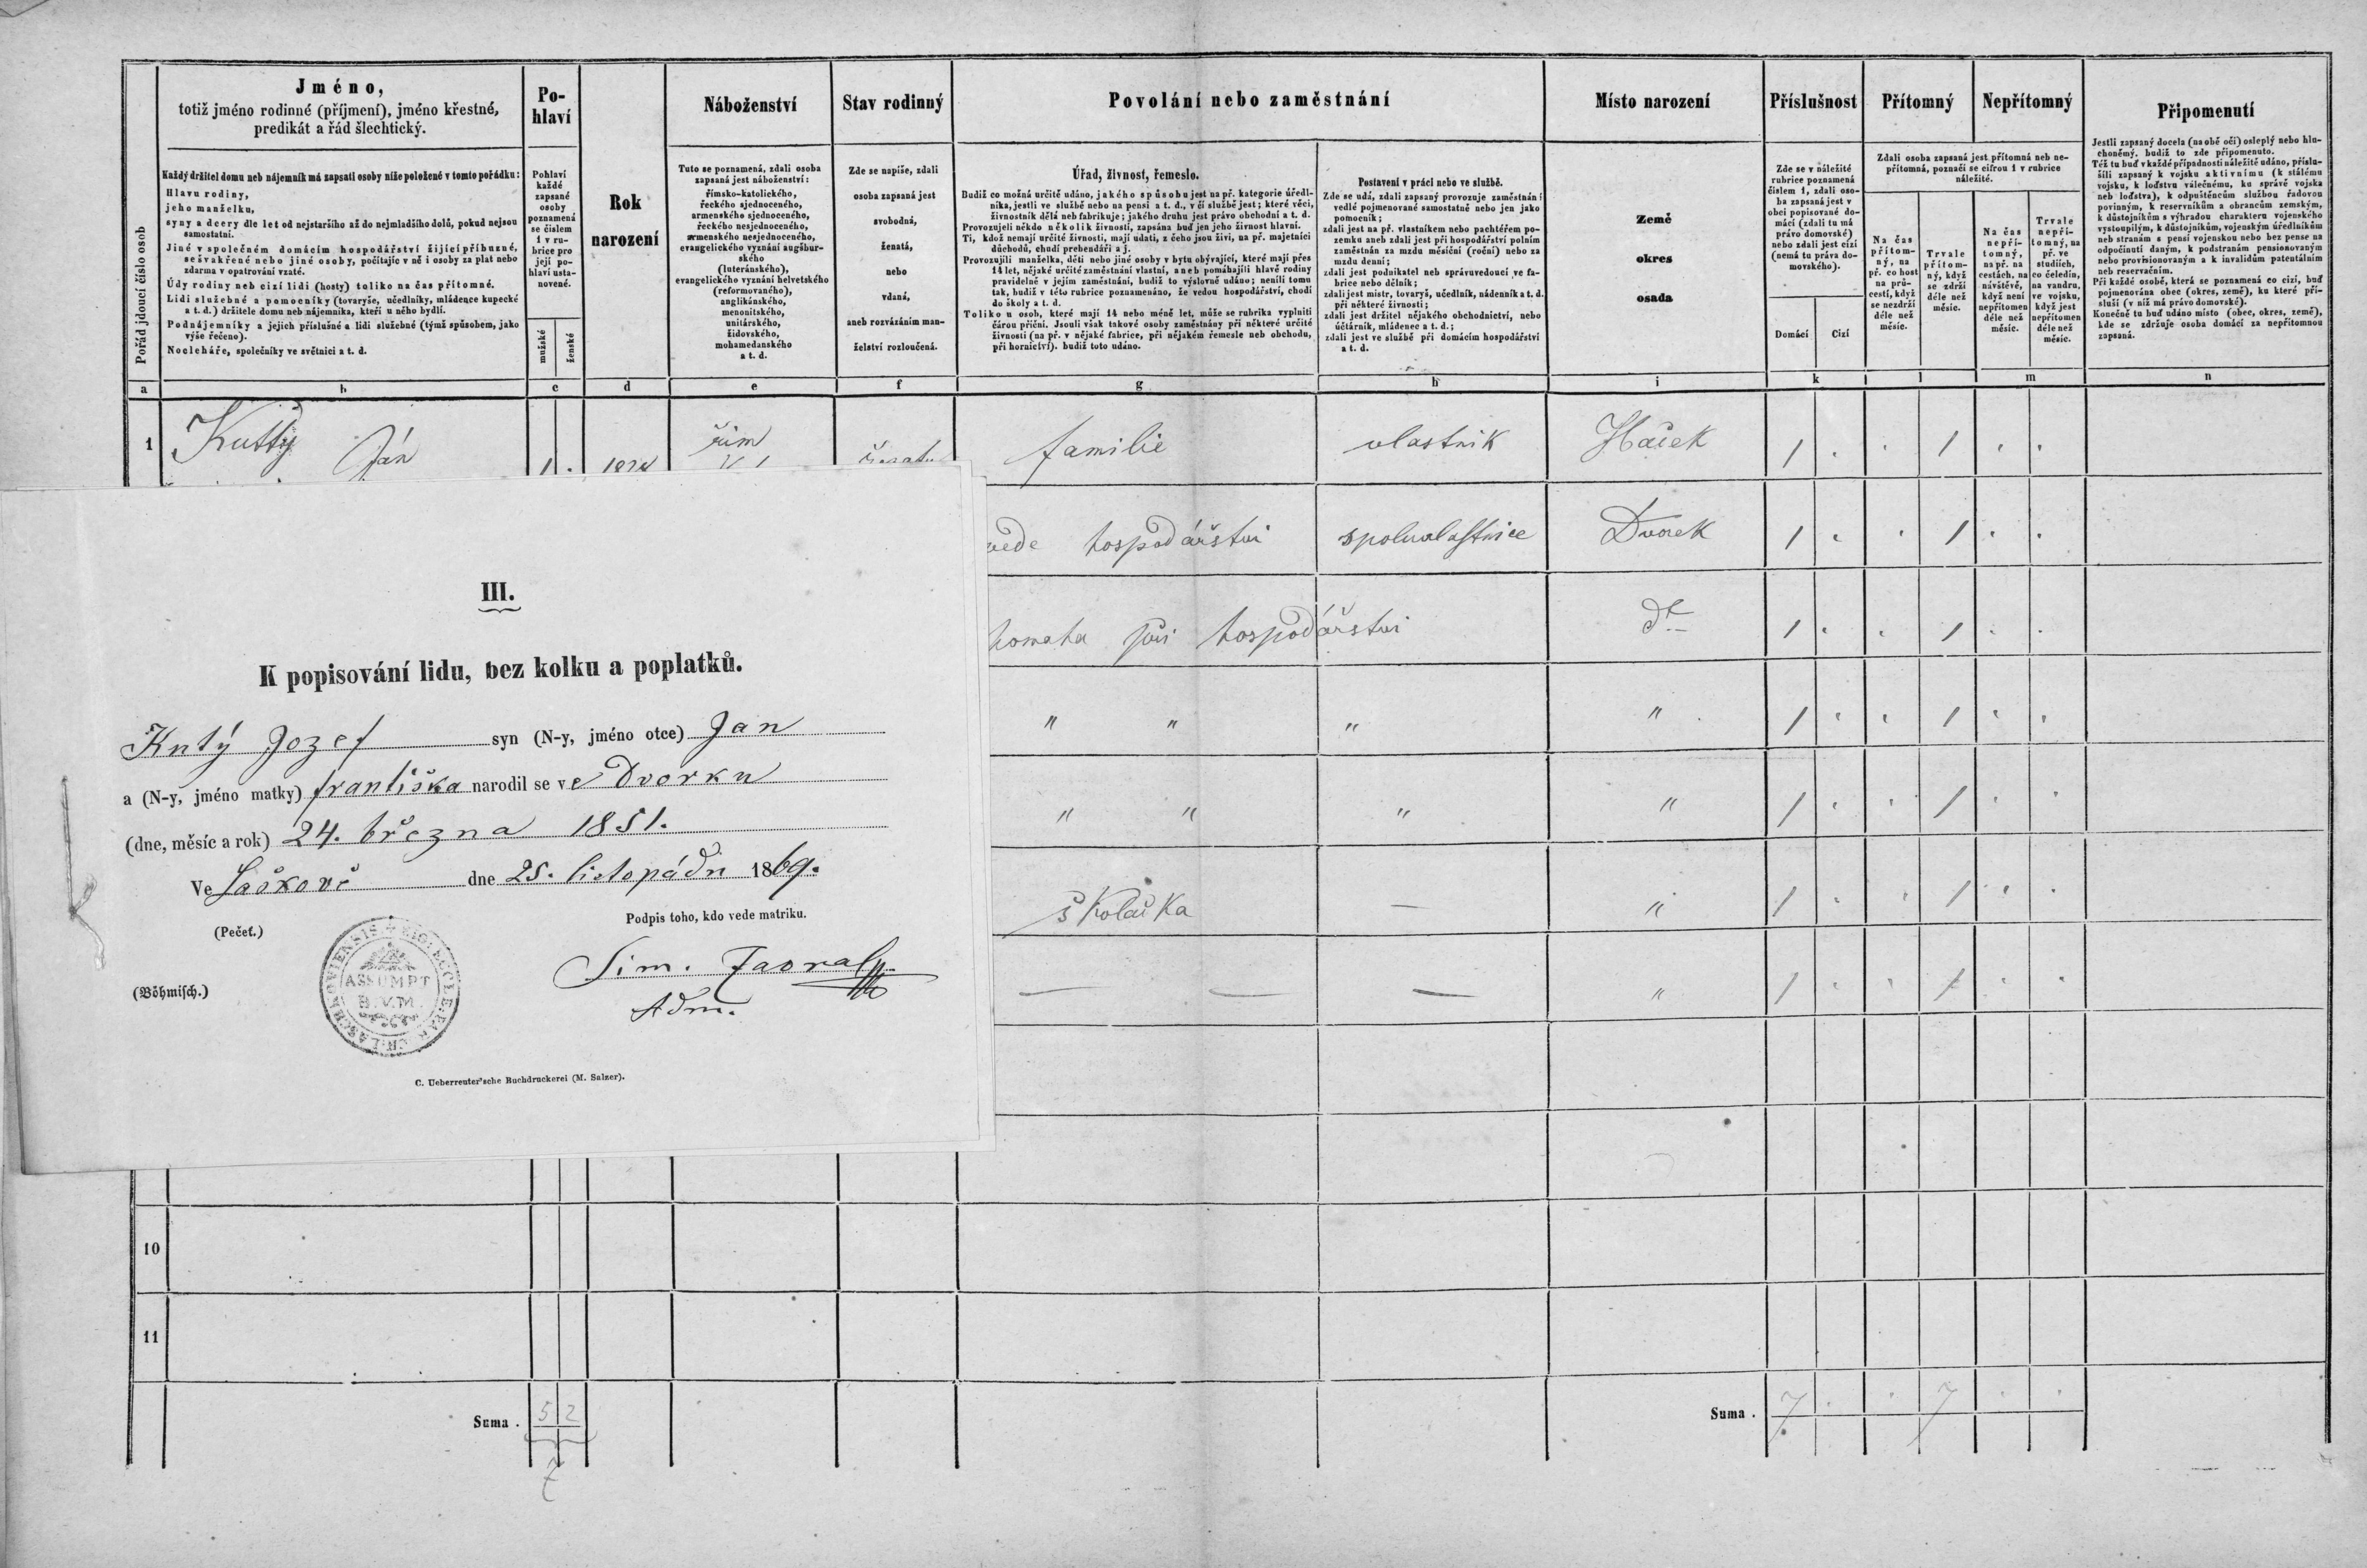 Jméno,
totiž jméno rodinné (příjmení), jméno křestné,
predikát a řád šlechtický.
Po-
hlaví
Rok
narození
Náboženství
Stav rodinný
Povolání nebo zaměstnání
Místo narození
Příslušnost
Přítomný
Nepřítomný
Připomenutí
Pořád jdoucí číslo osob
Každý držitel domu neb nájemník má zapsati osoby níže položené v tomto pořádku:
Hlavu rodiny,
jeho manželku,
syny a dcery dle let od nejstaršího až do nejmladšího dolů, pokud nejsou
samostatní.
Jiné v společném domácím hospodářství žijící příbuzné,
sešvakřené nebo jiné osoby, počítajíc v ně i osoby za plat nebo
zdarma v opatrování vzaté.
Údy rodiny neb cizí lidi (hosty) toliko na čas přítomné.
Lidi služebné a pomocníky (tovaryše, učedlníky, mládence kupecké
a t. d.) držitele domu neb nájemníka, kteří u něho bydlí.
Podnájemníky a jejich příslušné a lidi služebné (týmž spůsobem, jako
výše řečeno).
Nocleháře, společníky ve světnici a t. d.
Pohlaví
každé
zapsané
osoby
poznamená
se číslem
1 v ru-
brice pro
její po-
hlaví usta-
novené.
mužské
ženské
Tuto se poznamená, zdali osoba
zapsaná jest náboženství:
římsko-katolického,
řeckého sjednoceného,
armenského sjednoceného,
řeckého nesjednoceného,
armenského nesjednoceného,
evangelického vyznání augšbur-
ského
(luteránského),
evangelického vyznání helvetského
(reformovaného),
anglikánského,
menonitského,
unitářského,
židovského,
mohamedanského
a t. d.
Zde se napíše, zdali
osoba zapsaná jest
svobodná,
ženatá,
nebo
vdaná,
aneb rozvázáním man-
želství rozloučená.
Úřad, živnost, řemeslo.
Budiž co možná určitě udáno, jakého spůsobu jest na př. kategorie úředl-
níka, jestli ve službě nebo na pensi a t. d., v čí službě jest; které věci,
živnostník dělá neb fabrikuje; jakého druhu jest právo obchodní a t. d.
Provozujeli někdo několik živností, zapsána buď jen jeho živnost hlavní.
Ti, kdož nemají určité živnosti, mají udati, z čeho jsou živi, na př. majetníci
důchodů, chudí prebendáři a j.
Provozujíli manželka, děti nebo jiné osoby v bytu obývající, které mají přes
14 let, nějaké určité zaměstnání vlastní, aneb pomáhajíli hlavě rodiny
pravidelně v jejím zaměstnání, budiž to výslovně udáno; nenili tomu
tak, budiž v této rubrice poznamenáno, že vedou hospodářství, chodí
do školy a t. d.
Toliko u osob, které mají 14 nebo méně let, může se rubrika vyplniti
čárou příční. Jsouli však takové osoby zaměstnány při některé určité
živnosti (na př. v nějaké fabrice, při nějakém řemesle neb obchodu,
při hornictví). budiž toto udáno.
Postavení v práci nebo ve službě.
Zde se udá, zdali zapsaný provozuje zaměstnání
vedlé pojmenované samostatně nebo jen jako
pomocník;
zdali jest na př. vlastníkem nebo pachtéřem po-
zemku aneb zdali jest při hospodářství polním
zaměstnán za mzdu měsíční (roční) nebo za
mzdu denní;
zdali jest podnikatel neb správuvedoucí ve fa-
brice nebo dělník;
zdali jest mistr, tovaryš, učedlník, nádenník a t. d.
při některé živnosti;
zdali jest držitel nějakého obchodnictví, nebo
účtárník, mládenec a t. d.;
zdali jest ve službě při domácím hospodářství
a t. d.
Země
okres
osada
Zde se v náležité
rubrice poznamená
číslem 1, zdali oso-
ba zapsaná jest v
obci popisované do-
mácí (zdali tu má
právo domovské)
nebo zdali jest cizí
(nemá tu práva do-
movského).
Domácí
Cizí
Zdali osoba zapsaná jest přítomná neb ne-
přítomná, poznačí se cifrou 1 v rubrice
náležité.
Na čas
přítom-
ný, na
př. co host
na prů-
cestí, když
se nezdrží
déle než
měsíc.
Trvale
přítom-
ný, když
se zdrží
déle než
měsíc.
Na čas
nepří-
tomný,
na př. na
cestách, na
návštěvě,
když není
nepřítomen
déle než
měsíc.
Trvale
nepří-
tomný, na
př. ve
studiích,
co čeledín,
na vandru,
ve vojsku,
když jest
nepřítomen
déle než
měsíc.
Jestli zapsaný docela (na obě oči) oslepý nebo hlu-
choněmý. budiž to zde připomenuto.
Též tu buď v každé případnosti náležitě udáno, příslu-
šíli zapsaný k vojsku aktivnímu (k stálému
vojsku, k loďstvu válečnému, ku správě vojska
neb loďstva), k odpuštěncům službou řadovou
povinným, k reservníkům a obrancům zemským,
k důstojníkům s výhradou charakteru vojenského
vystoupilým, k důstojníkům, vojenským úředlníkům
neb stranám s pensí vojenskou nebo bez pense na
odpočinutí daným, k podstranám pensionovaným
nebo provisionovaným a k invalidům patentálním
neb reservačním.
Při každé osobě, která se poznamená co cizí, buď
pojmenována obec (okres, země), ku které pří-
sluší (v níž má právo domovské).
Konečně tu buď udáno místo (obec, okres, země),
kde se zdržuje osoba domácí za nepřítomnou
zapsaná.
a b c d e f g h i k l m n
1 Kuttý Ján 1 . řím familie vlastnik Haček 1 . . 1 . .
vede hospodářstvi spoluvlastnice Dvorek 1 . . 1 . .
pomaha při hospodářstvi dt 1 . . 1 . .
" " " " 1 . . 1 . .
" " " " 1 . . 1 . .
školačka — " 1 . . 1 . .
— — — " 1 . . 1 . .
III.
K popisování lidu, bez kolku a poplatků.
Kutý Jozef syn (N-y, jméno otce) Jan
a (N-y, jméno matky) františka narodil se ve Dvorku
(dne, měsíc a rok) 24. března 1851.
Ve Laškově dne 25. listopádu 1869.
(Pečeť.)
Podpis toho, kdo vede matriku.
ASSUMPT
B.V.M.
Sim. Zaoral
Adm.
(Böhmisch.)
C. Ueberreuter'sche Buchdruckerei (M. Salzer).
10
11
Suma . 5 2
Suma . 7 . . 7 . .
7